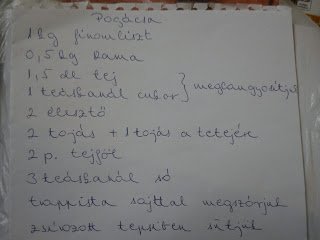 Pogácsa
1 kg finomliszt
0,5 kg Rama
1,5 dl tej
1 teáskanál cukor } meglangyosítjuk
2 élesztő
2 tojás + 1 tojás a tetejére
2 p. tejföl
3 teáskanál só
trappista sajttal megszórjuk
zsírozott tepsiben sütjük